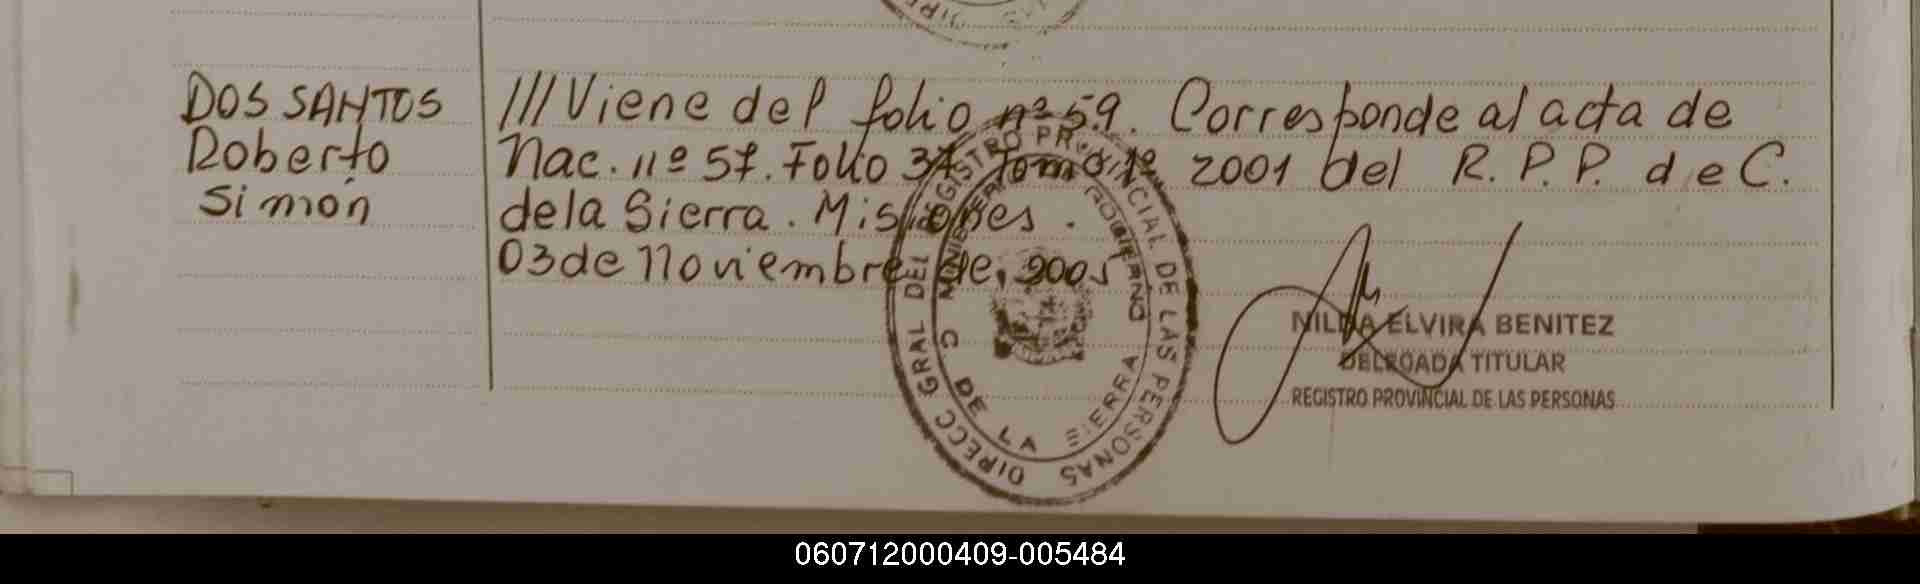 DOS SANTOS
Roberto
Simón
///Viene del folio nº 59. Corresponde al acta de
Nac. nº 57. Folio 37 Tomo 1º 2001 del R.P.P. de C.
de la Sierra. Misiones.
03 de Noviembre de 2005
DIRECC GRAL DEL REGISTRO PROVINCIAL DE LAS PERSONAS
MINISTERIO GOBIERNO
C DE LA SIERRA
NILDA ELVIRA BENITEZ
DELEGADA TITULAR
REGISTRO PROVINCIAL DE LAS PERSONAS
060712000409-005484